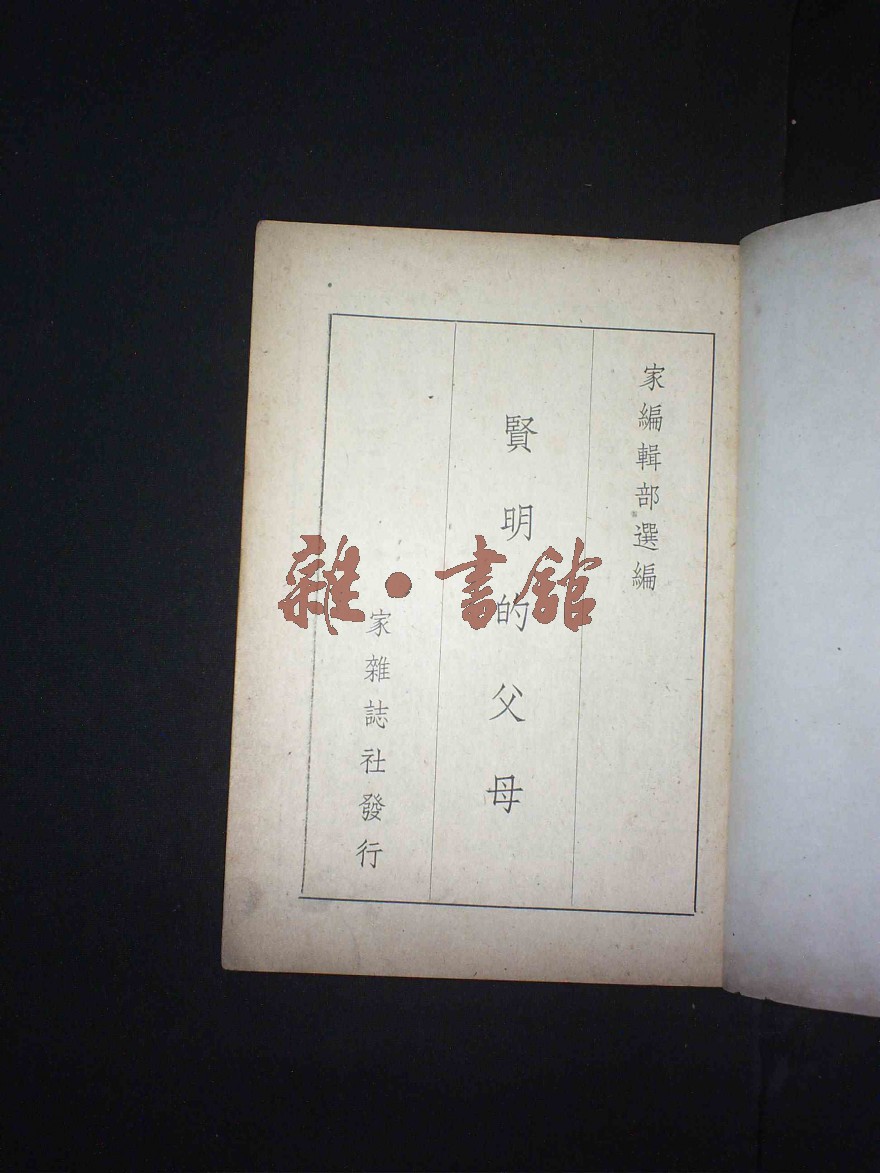 家編輯部選編
賢明的父母
家雜誌社發行
雜·書館